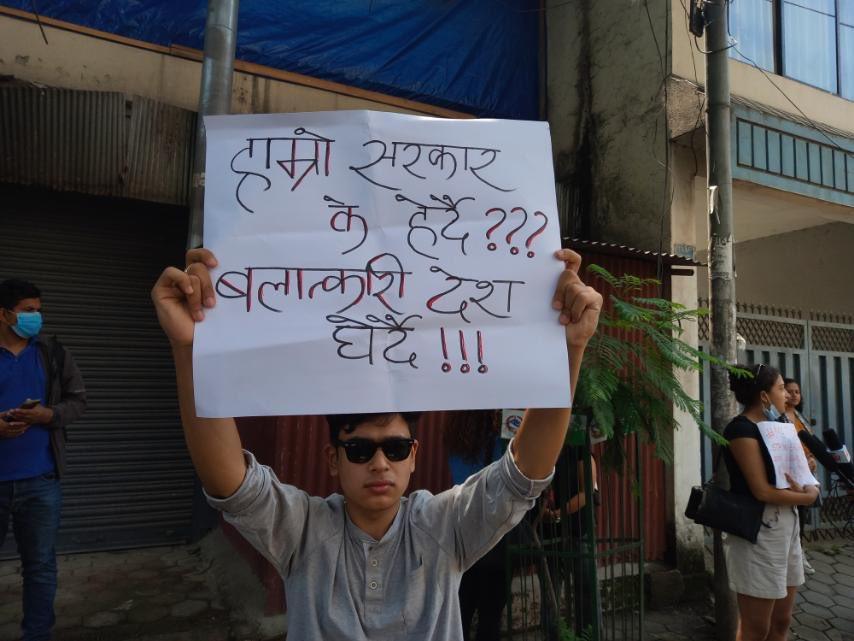 हाम्रो सरकार
के हेर्दै ???
बलात्कारी देश
घेर्दै !!!